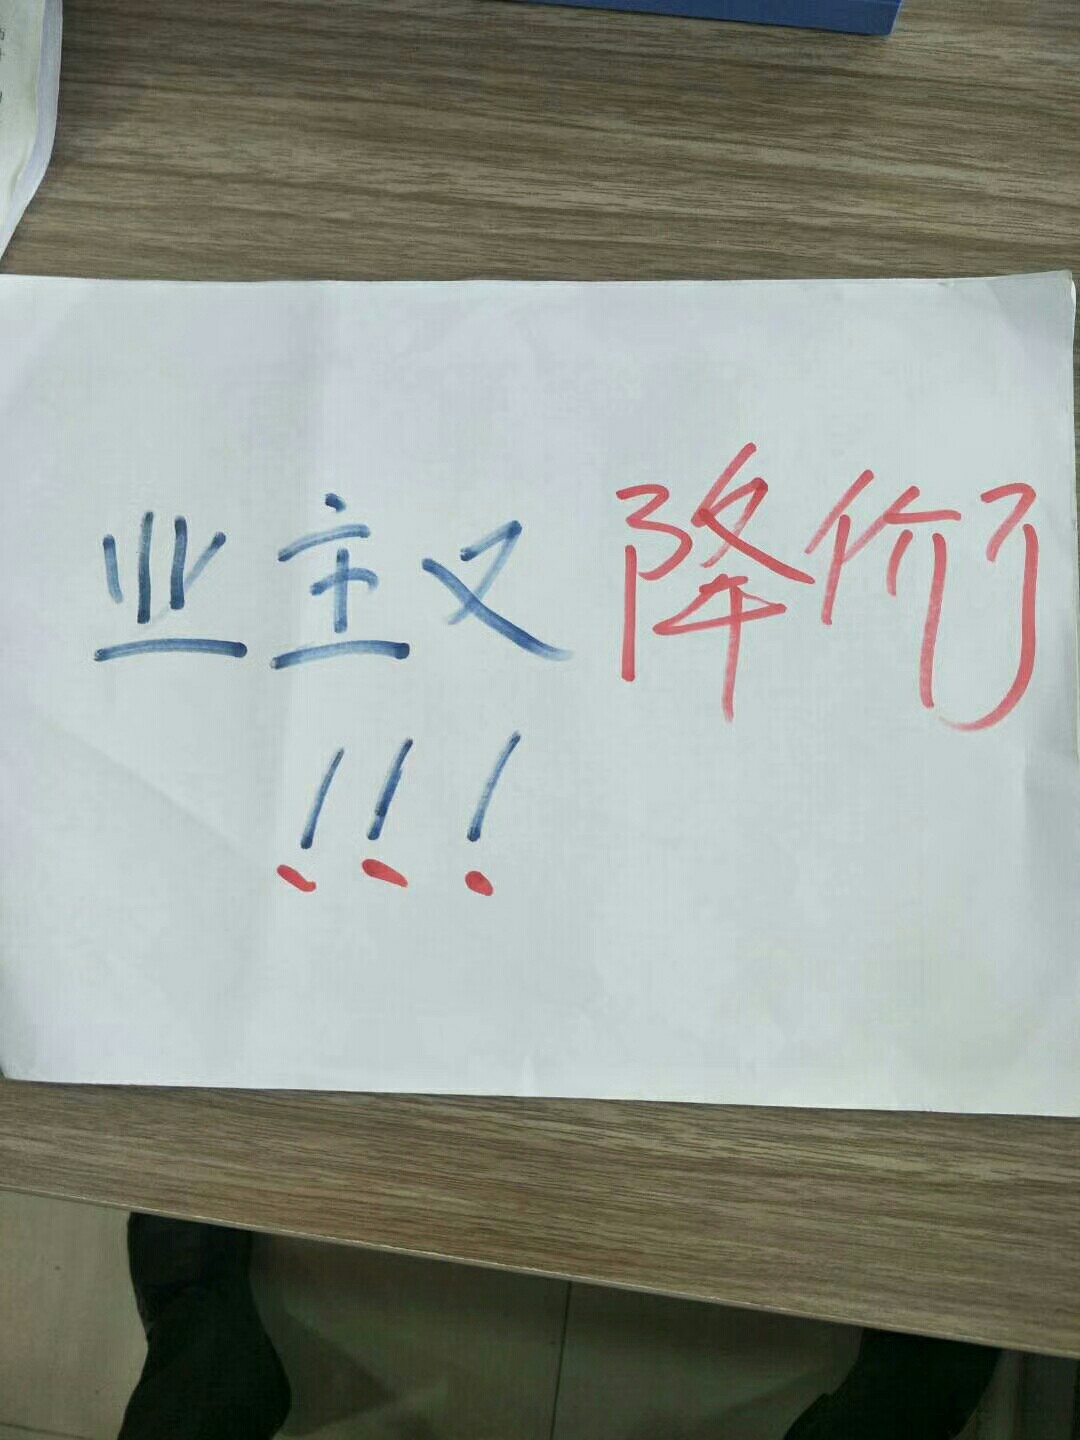 业主又降价了
!!!